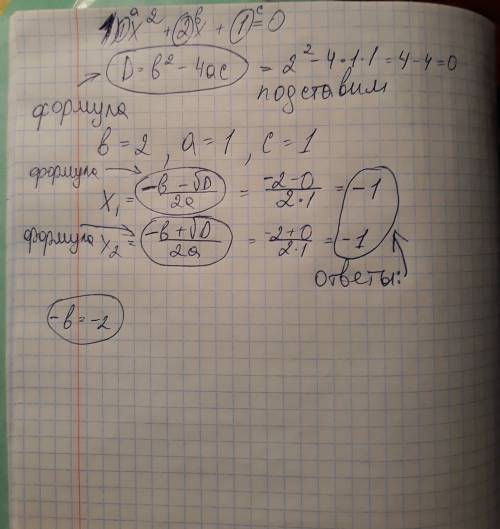 1x² + 2x + 1 = 0
a b c
D = b² - 4ac = 2² - 4·1·1 = 4 - 4 = 0
формула подставим
b = 2, a = 1, c = 1
формула
x₁ = (-b - √D)/2a = (-2-0)/2·1 = -1
формула x₂ = (-b + √D)/2a = (-2+0)/2·1 = -1
ответы:
-b = -2